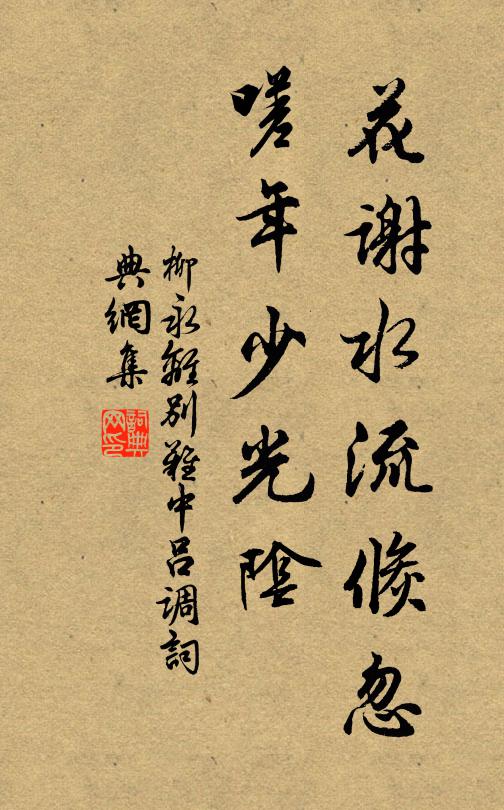 花謝水流倏忽
嗟年少光陰
柳永離別難中呂调詞
典網集
詞典网印